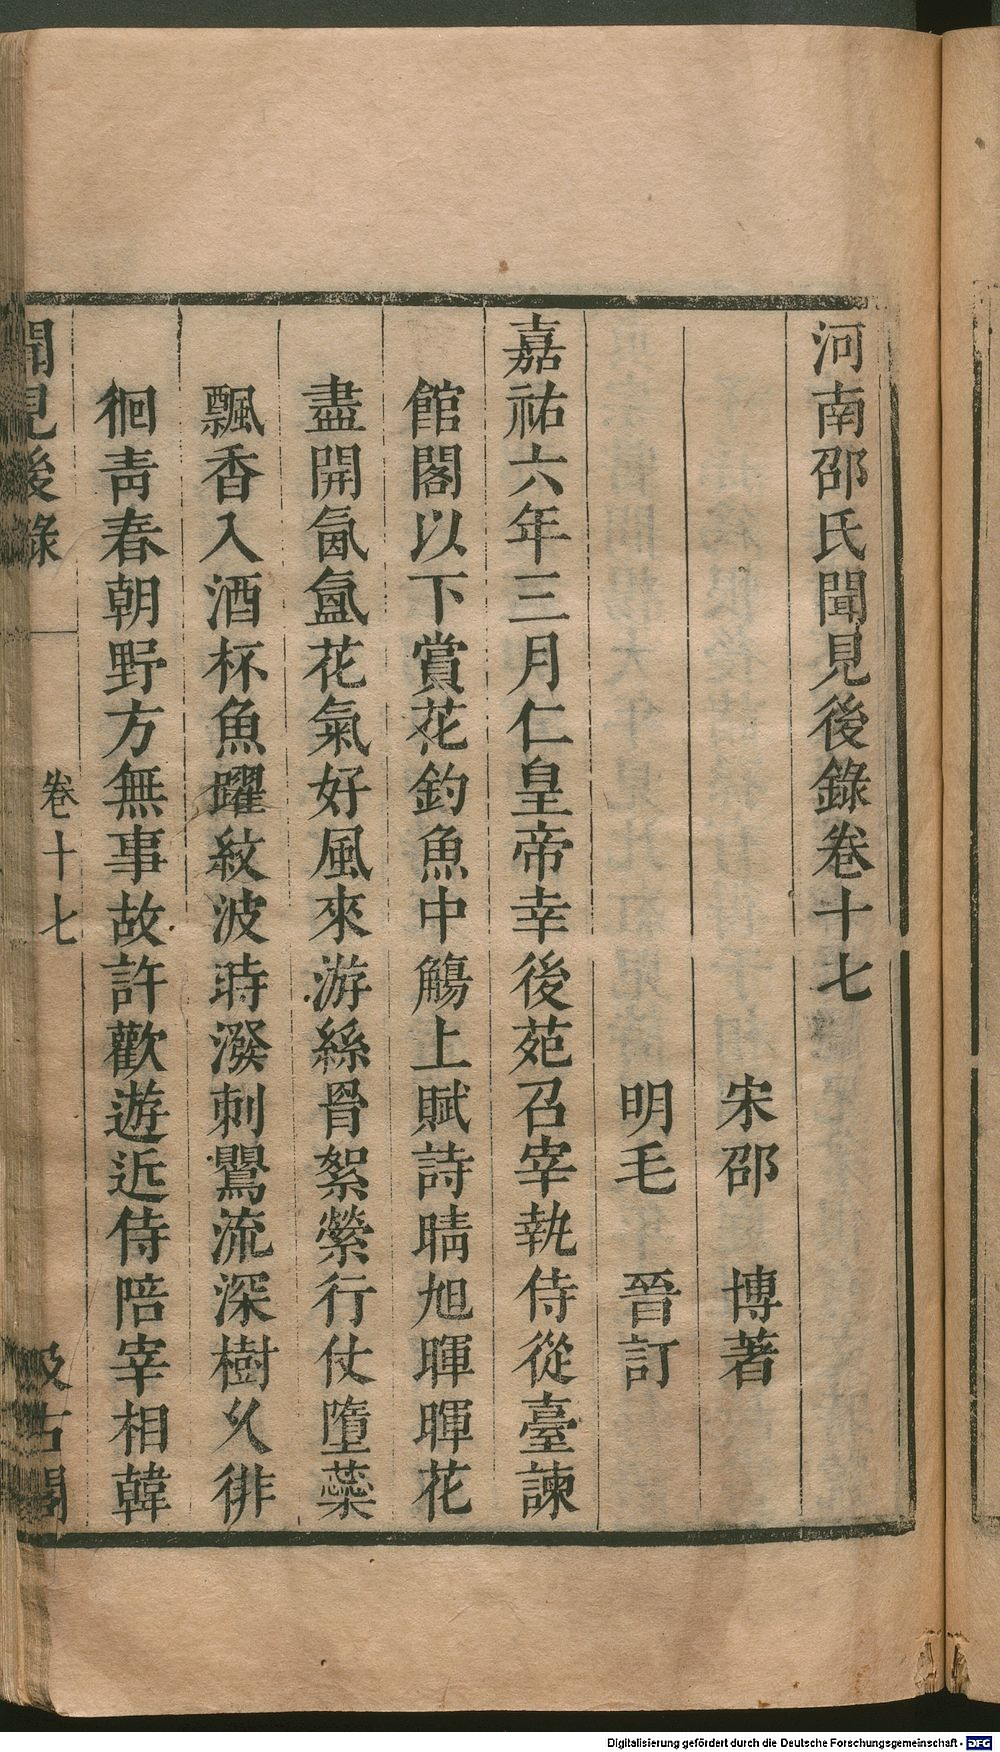 河南邵氏聞見後錄卷十七
宋邵　博著
明毛　晉訂
嘉祐六年三月仁皇帝幸後苑召宰執侍從臺諫
館閣以下賞花釣魚中觴上賦詩晴旭暉暉花
盡開氤氳花氣好風來游絲罥絮縈行仗墮蘂
飄香入酒杯魚躍紋波時潑刺鸎流深樹乆徘
徊靑春朝野方無事故許歡遊近侍陪宰相韓
聞見後錄
卷十七
汲古閣
Digitalisierung gefördert durch die Deutsche Forschungsgemeinschaft - DFG